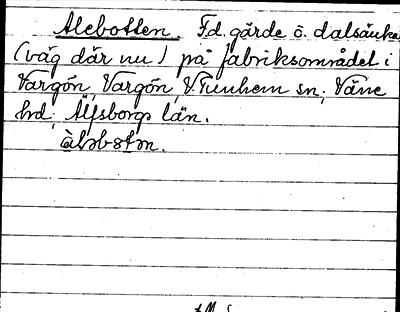 Alebotten. Fd. gärde ö. dalsänke
(väg där nu) på fabriksområdet i
Vargön, Vargön, V. Tunhem sn, Väne
hd, Älfsborgs län.